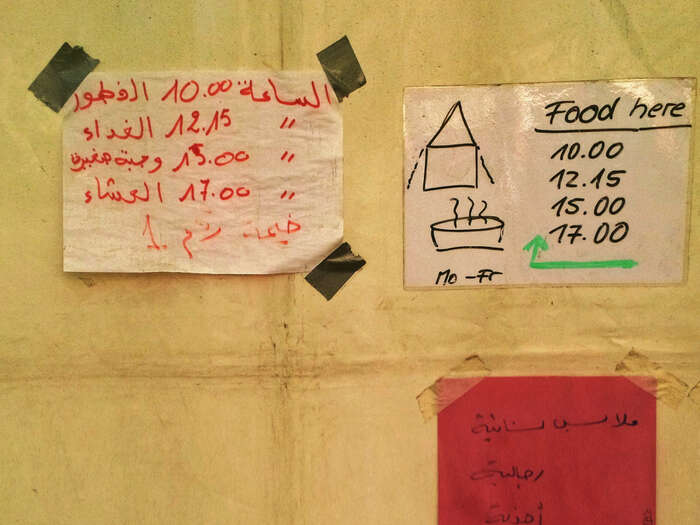 الساعة 10.00 الفطور
" 12.15 الغداء
" 15.00 وجبة صغيرة
" 17.00 العشاء
خيمة رقم 1.
Food here
10.00
12.15
15.00
17.00
Mo - Fr
ملابس نسائية
رجالية
أحذية